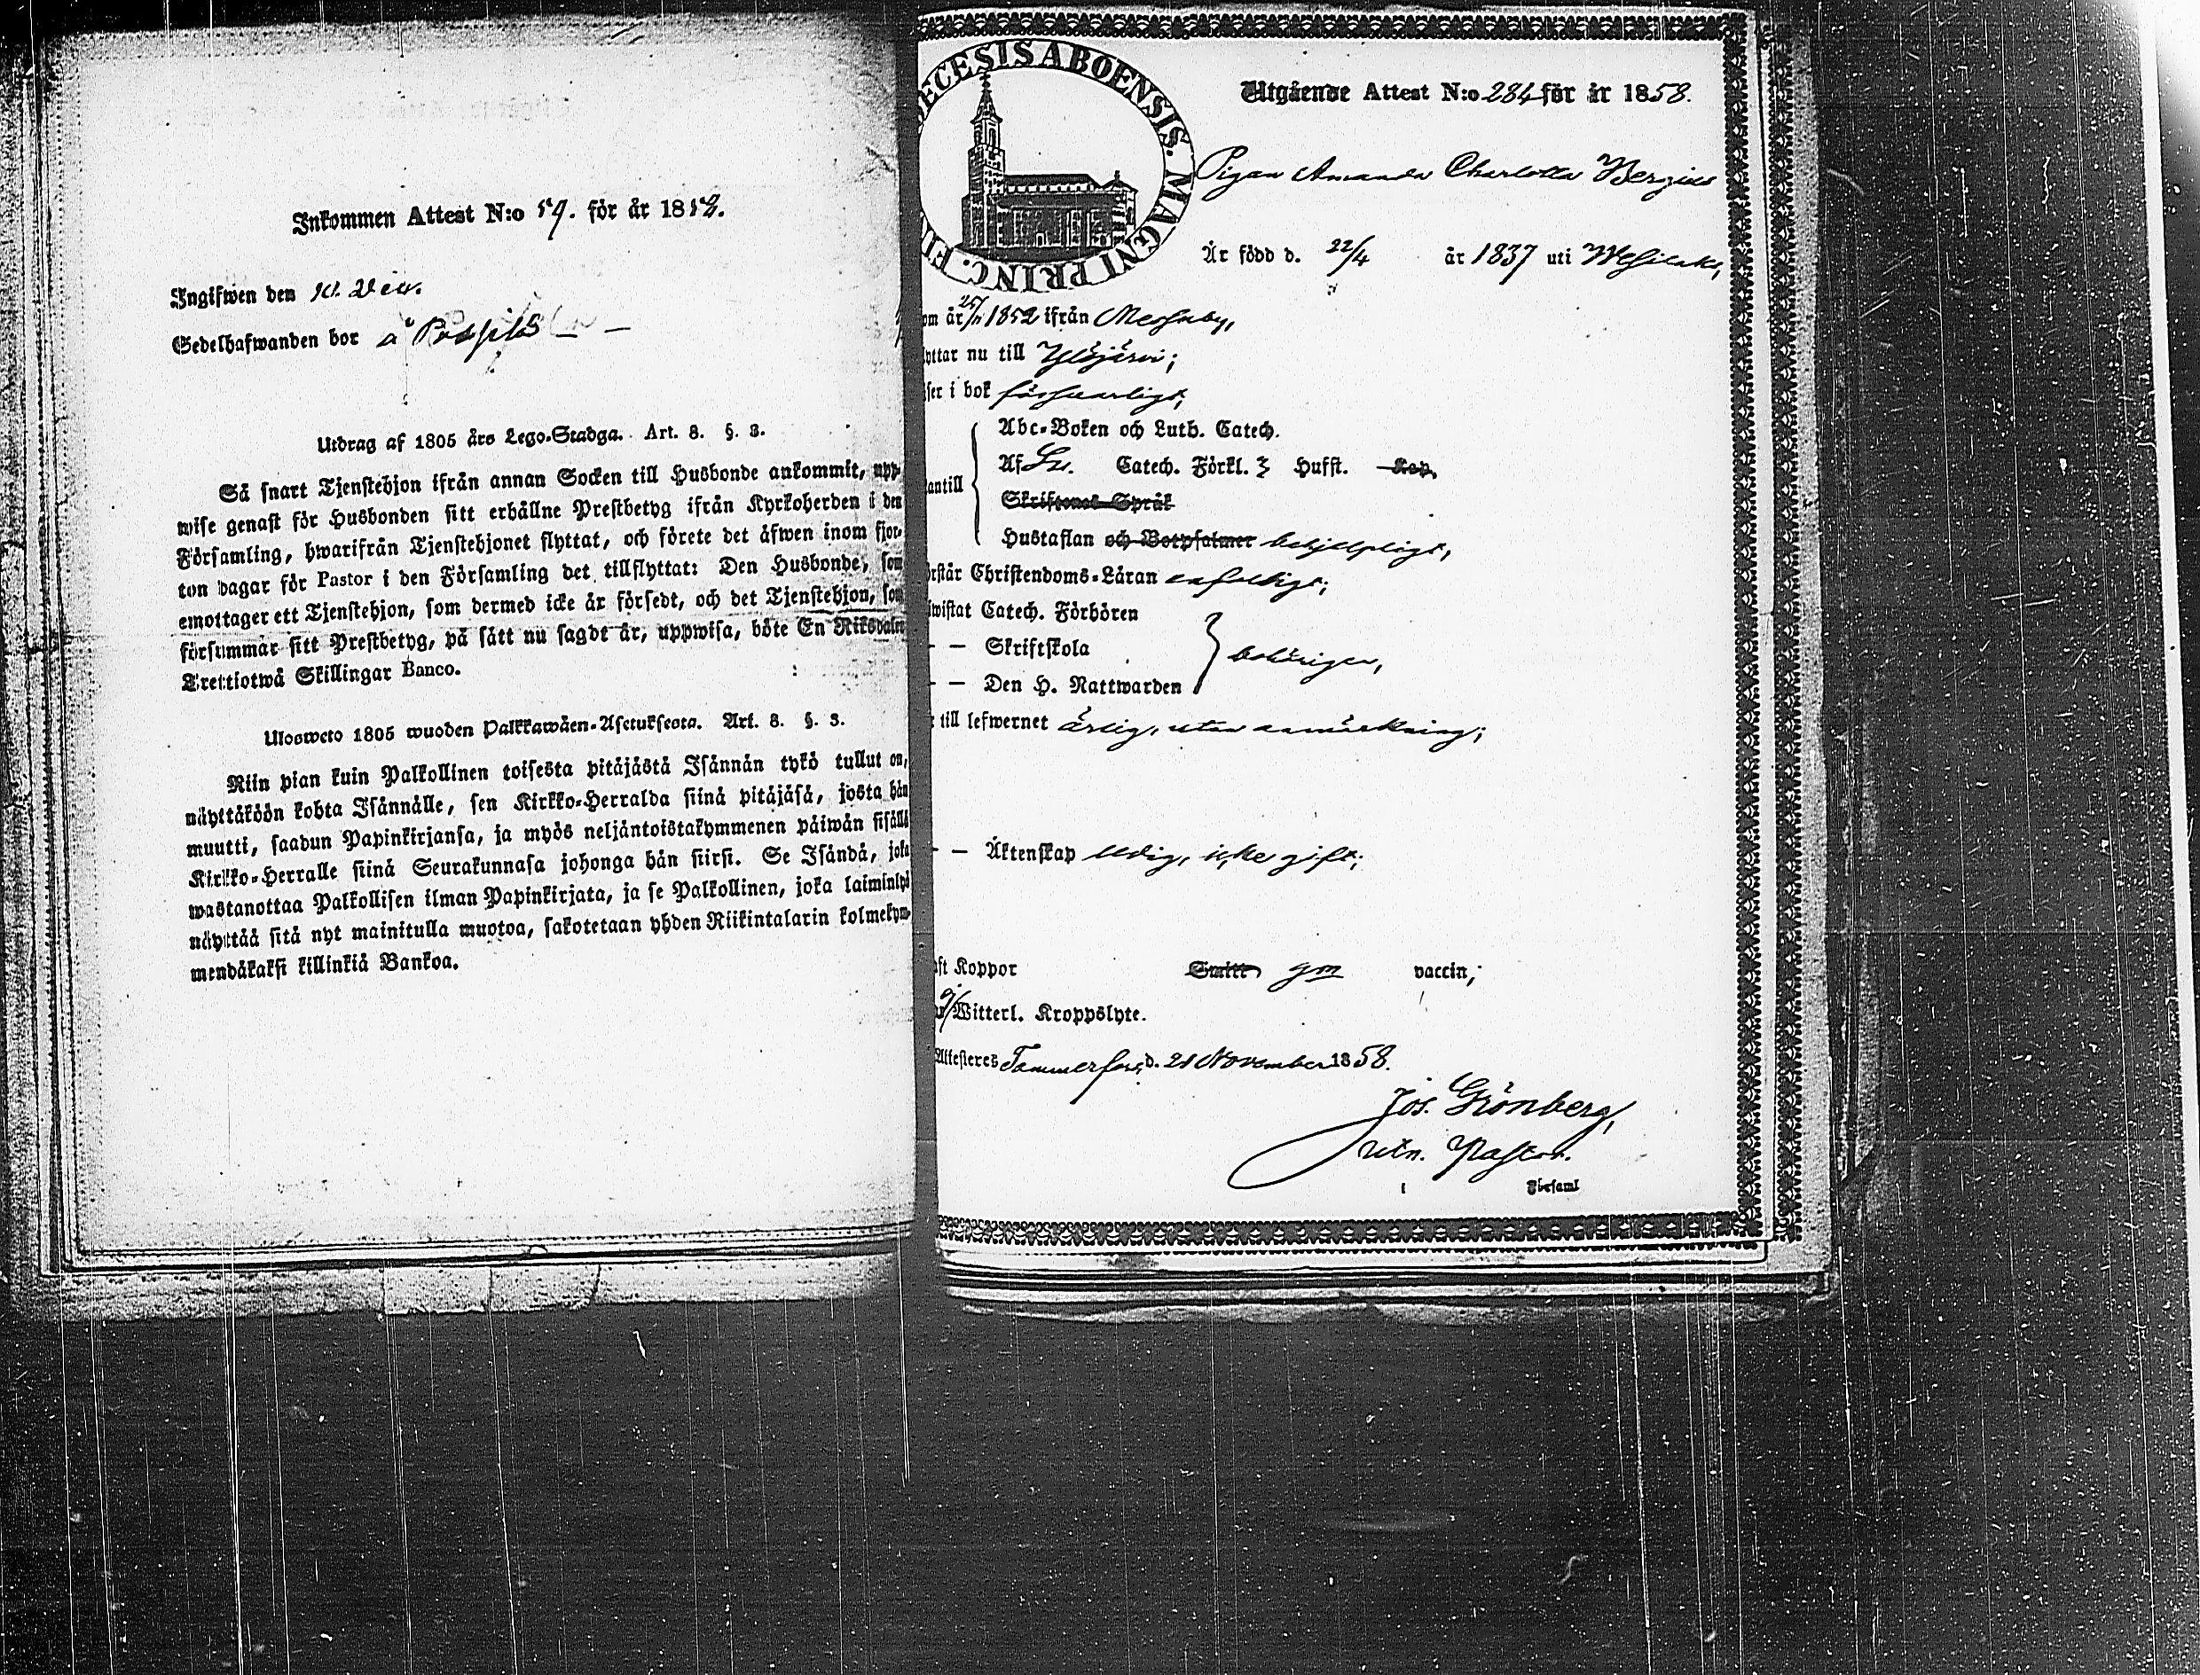 Inkommen Attest N:o 59. för år 1858.
Ingifwen den 10. Dec.
Sedelhafwanden bor å
Utdrag af 1805 års Lego-Stadga. Art. 8. §. 3.
Så snart Tjenstehjon ifrån annan Socken till Husbonde ankommit, upp-
wise genast för Husbonden sitt erhållne Prestbetyg ifrån Kyrkoherden i den
Församling, hwarifrån Tjenstehjonet flyttat, och förete det äfwen inom fjor-
ton dagar för Pastor i den Församling det tillflyttat: Den Husbonde, som
emottager ett Tjenstehjon, som dermed icke är försedt, och det Tjenstehjon, som
försummar sitt Prestbetyg, på sätt nu sagdt är, uppwisa, böte En Riksdaler
Trettiotwå Skillingar Banco.
Ulosweto 1805 wuoden Palkkawäen-Asetuksesta. Art. 8. §. 3.
Niin pian kuin Palkollinen toisesta pitäjästä Isännän tykö tullut on,
näyttäköön kohta Isännälle, sen Kirkko-Herralda siinä pitäjäsä, josta hän
muutti, saadun Papinkirjansa, ja myös neljäntoistakymmenen päiwän sisällä
Kirkko-Herralle siinä Seurakunnasa johonga hän siirsi. Se Isändä, joka
wastanottaa Palkollisen ilman Papinkirjata, ja se Palkollinen, joka laiminlyö
näyttää sitä nyt mainitulla muotoa, sakotetaan yhden Riikintalarin kolmekym-
mendäkaksi killinkiä Bankoa.
ECESIS ABOENSIS. MAGNI PRINC. FI
Utgående Attest N:o 284 för år 1858.
Pigan Amanda Charlotta Bergius
Är född d. 22/4 år 1837 uti Wesilaks,
om år 25/11 1852 ifrån Messuby,
yttar nu till Ylöjärvi;
ser i bok försvarligt,
Abc-Boken och Luth. Catech.
antill Af Sv. Catech. Förkl. 3 Hufst. Kap.
Skriftenes Språk
Hustaflan och Botpsalmer behjelpligt,
rstår Christendoms-Läran enfaldigt;
iwistat Catech. Förhören
— Skriftskola behörigen,
— Den H. Nattwarden
till lefwernet ärlig, utan anmärkning;
— Äktenskap ledig, icke gift;
ft Koppor Smitt gm vaccin;
Witterl. Kroppslyte.
Attesteres Tammerfors, d. 21 November 1858.
Jos. Grönberg,
Past.
Församl